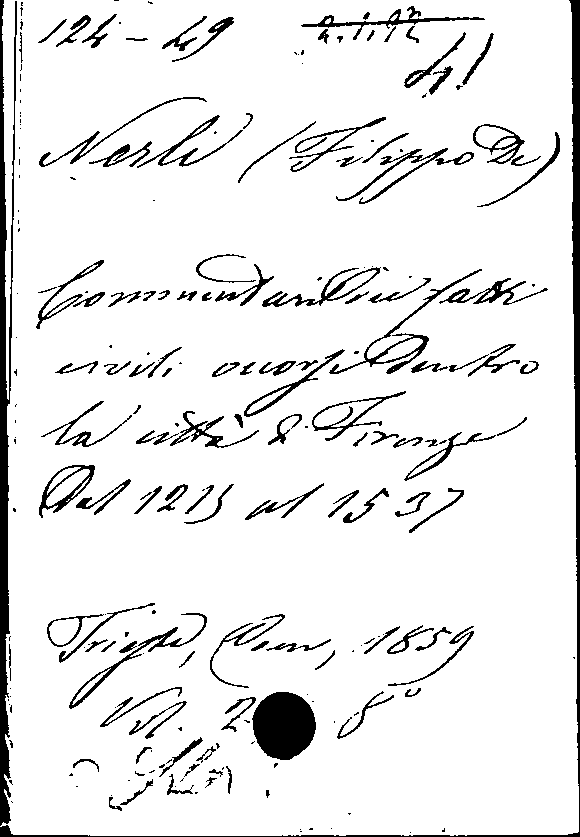 124 - 49
41
Nerli (Filippo De)
Commentari Dei fatti
civili occorsi Dentro
la città di Firenze
Dal 1215 al 1537
Trieste, Coen, 1859
Vol. 2 8°